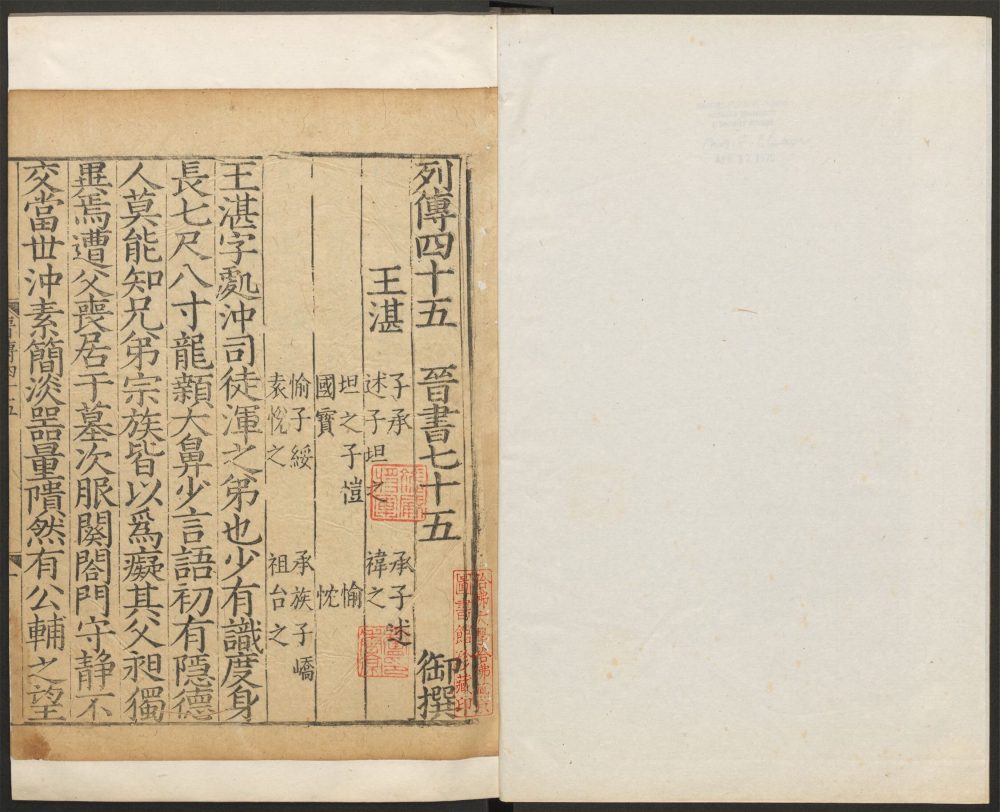 列傳四十五　晉書七十五　御撰
王湛　子承　承子述
述子坦之　禕之
坦之子愷　愉
國寶　忱
愉子綏　承族子嶠
袁悅之　祖台之
王湛字處沖司徒渾之弟也少有識度身
長七尺八寸龍顙大鼻少言語初有隱德
人莫能知兄弟宗族皆以爲癡其父昶獨
異焉遭父喪居于墓次服闋閤門守静不
交當世沖素簡淡器量隤然有公輔之望
哈佛大學哈佛燕京
圖書館珍藏印